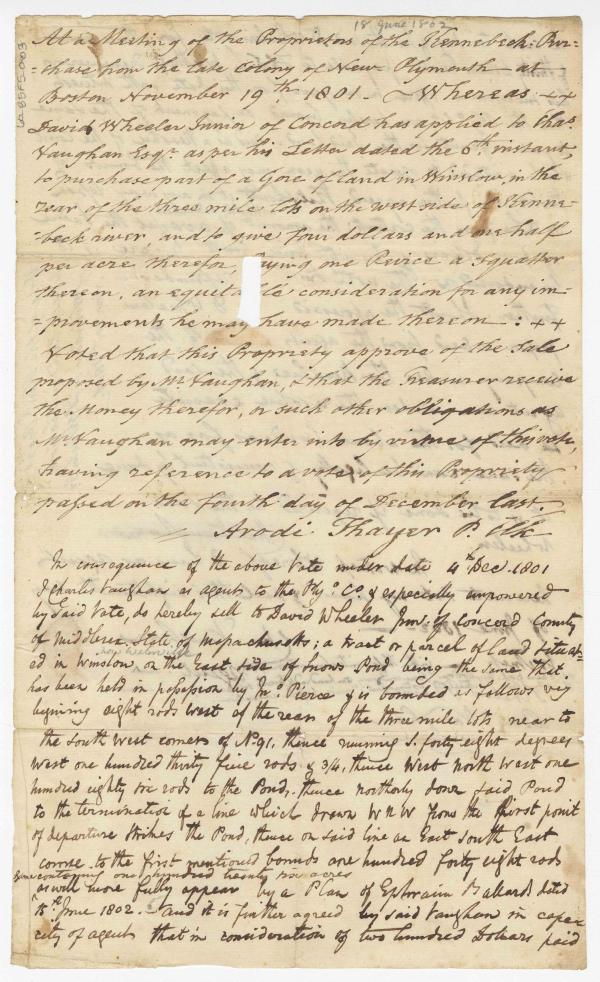 18 June 1802
At a Meeting of the Proprietors of the Kennebeck Pur=
=chase from the late Colony of New Plymouth at
Boston November 19th. 1801. ~ Whereas ++
David Wheeler Junior of Concord has applied to Chas.
Vaughan Esqr. as per his Letter dated the 6th. instant,
to purchase part of a Gore of land in Winslow, in the
rear of the three mile lots on the west side of Kenne=
=beck river, and to give four dollars and one half
per acre therefor, paying one Peirce a Squatter
thereon, an equitable consideration for any im=
=provements he may have made thereon : ++
Voted that this Propriety approve of the Sale
proposed by Mr. Vaughan, & that the Treasurer receive
the Money therefor, or such other obligations as
Mr. Vaughan may enter into by virtue of this vote,
having reference to a vote of this Propriety
passed on the fourth day of December last.
Arodi Thayer P. Clk
In consequence of the above Vote under date 4th Dec. 1801
I Charles Vaughan as agent to the Plyo. Co. & especially empowered
by said Vote, do hereby sell to David Wheeler Junr. of Concord County
of Middlesex State of Massachusetts; a tract or parcel of Land situat=
ed in Winslow on the East side of Snows Pond being the same that
has been held in possession by Jno. Pierce & is bounded as follows viz
begining eight rods West of the rear of the three mile lots near to
the South West corner of No. 91, thence running S. forty eight degrees
West one hundred thirty five rods & 3/4, thence West north West one
hundred eighty six rods to the Pond, thence northerly down said Pond
to the termination of a line which drawn WNW from the first point
of departure strikes the Pond, thence on said line an East South East
course to the first mentioned bounds one hundred forty eight rods
containing one hundred twenty acres
as will more fully appear by a Plan of Ephraim Ballard dated
15th. June 1802. - and it is further agreed by said Vaughan in capa
city of agent that in consideration of two hundred Dollars paid